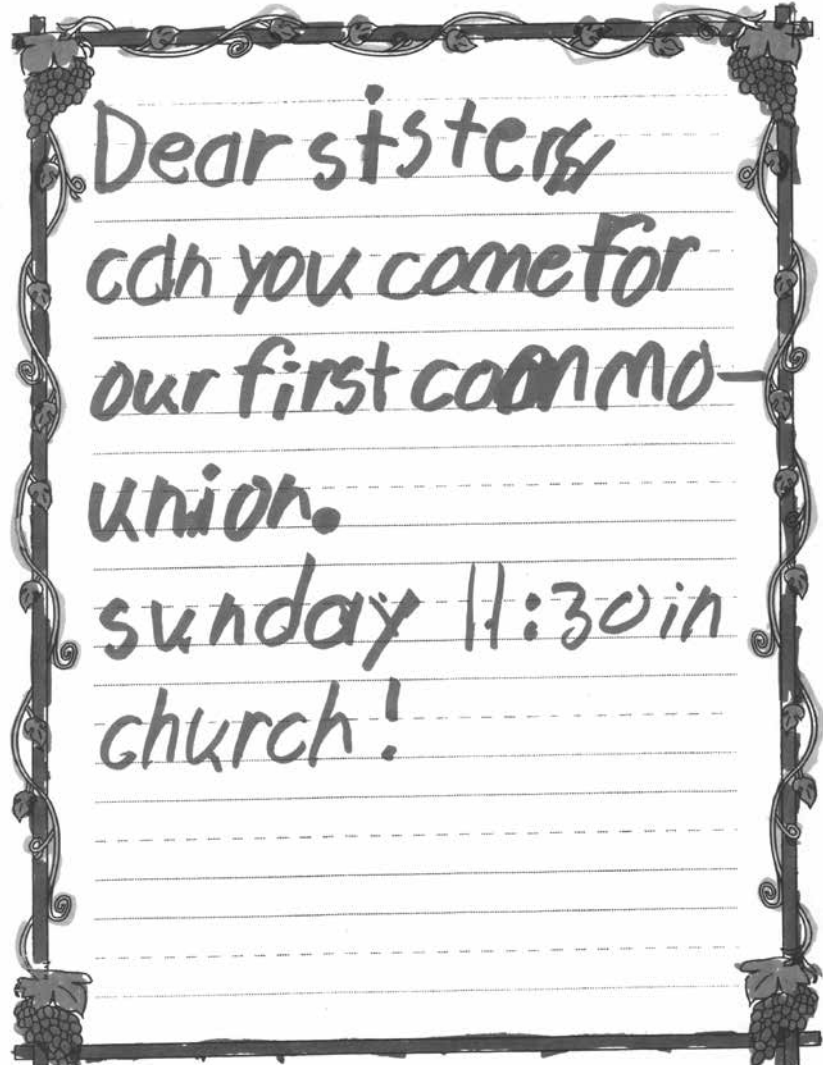 Dear sisters,
can you come for
our first common mo-
union.
sunday 11:30 in
church!